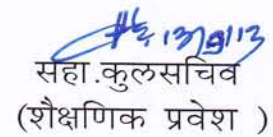 13/9/13
सहा.कुलसचिव
(शैक्षणिक प्रवेश )